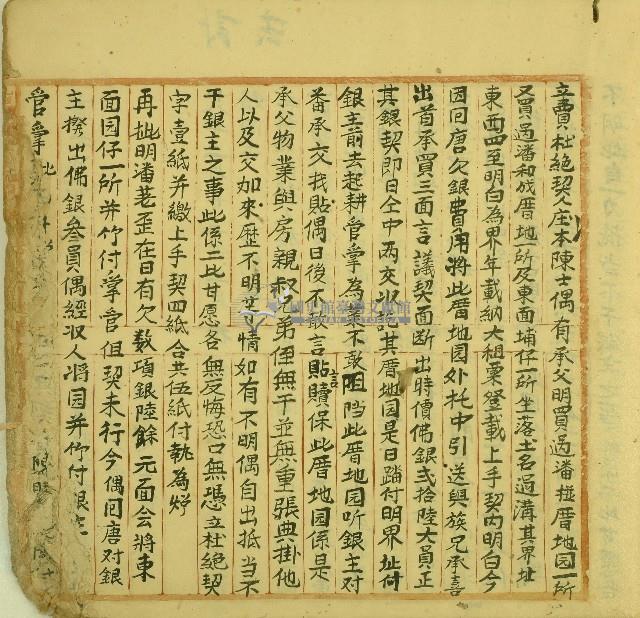 立賣杜絕契人庄本陳士偶有承父明買過潘槎厝地园一所
又買過潘和成厝地一所及東面埔仔一所坐落土名過溝其界址
東西四至明白為界年載納大租粟登載上手契內明白今
因回唐欠銀費用將此厝地园外托中引送與族兄承喜
出首承買三面言議契面断出時價佛銀弍拾陸大員正
其銀契即日仝中両交收訖其厝地园是日踏付明界址付
銀主前去起耕管掌為業不敢阻挡此厝地园听銀主对
番承交找貼偶日後不敢言貼言贖保此厝地园係是
承父物業與房親叔兄弟侄無干並無重張典掛他
人以及交加來歷不明等情如有不明偶自出抵当不
干銀主之事此係二比甘愿各無反悔恐口無憑立杜絕契
字壹紙并繳上手契四紙合共伍紙付執為炤
再批明潘茖歪在日有欠数項銀陸餘元面会將東
面园仔一所并竹付掌管但契未行今偶回唐对銀
主撥出佛銀叁員偶經收人將园并竹付銀主
管掌批
國立臺灣文學館